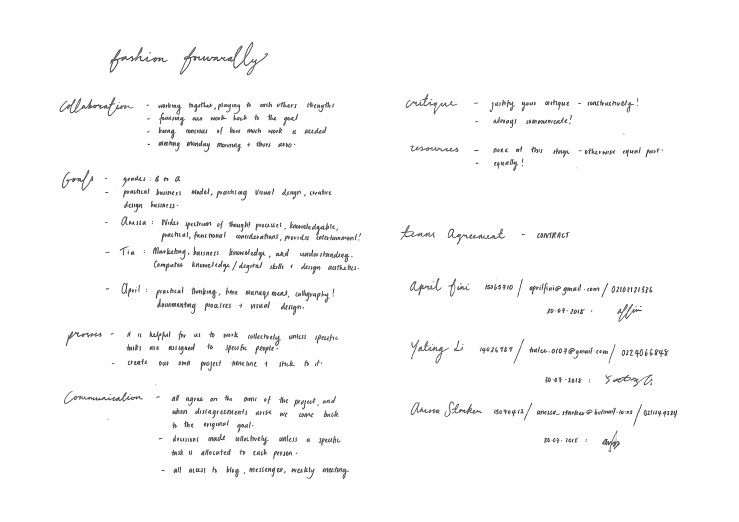 fashion forwardly
collaboration - working together, playing to each others strengths
- focusing our work back to the goal
- being concious of how much work is needed
- meeting monday morning + thurs arvo.
Goals - grades: B to A
- practical business model, practising visual design, creative
design business.
- Anessa: Wider spectrum of thought processes, knowledgable,
practical, functional considerations, provides entertainment!
- Tia: Marketing, business knowledge, and understanding.
Computer knowledge / digital skills + design aesthetics.
- April: practical thinking, time management, calligraphy!
documenting processes + visual design.
process - it is helpful for us to work collectively unless specific
tasks are assigned to specific people.
- create our own project timeline + stick to it.
Communication - all agree on the aims of the project, and
when disagreements arise we come back
to the original goal.
- decisions made collectively unless a specific
task is allocated to each person.
- all access to blog, messenger, weekly meeting
critique - justify your critique - constructively!
- always communicate!
resources - none at this stage - otherwise equal part.
- equally!
teams Agreement - CONTRACT
April fini / aprilfini@gmail.com /
30.07.2018.
Yating Li / /
30.07.2018:
Anessa / /
30.07.2018: